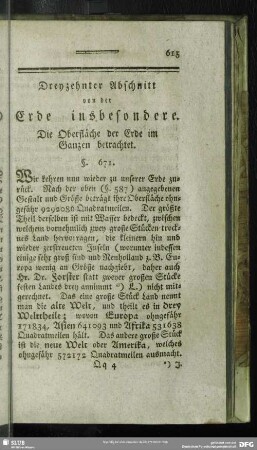 615
Dreyzehnter Abschnitt
von der
Erde insbesondere.
Die Oberfläche der Erde im
Ganzen betrachtet.
§. 671.
Wir kehren nun wieder zu unserer Erde zu-
rück. Nach der oben (§. 587) angegebenen
Gestalt und Größe beträgt ihre Oberfläche ohn-
gefähr Quadratmeilen. Der größte
Theil derselben ist mit Wasser bedeckt, zwischen
welchem vornehmlich zwey große Stücken trock-
nes Land hervorragen, die kleinern hin und
wieder zerstreueten Inseln (worunter indessen
einige sehr groß sind und Neuholland z. B. Eu-
ropa wenig an Größe nachgiebt, daher auch
Hr. Dr. Forster statt zweyer großen Stücke
festen Landes drey annimmt *) L.) nicht mit-
gerechnet. Das eine große Stück Land nennt
man die alte Welt, und theilt es in drey
Welttheile; wovon Europa ohngefähr
171834, Asien 641093 und Afrika 531638
Quadratmeilen hält. Das andere große Stück
ist die neue Welt oder Amerika, welches
ohngefähr 572172 Quadratmeilen ausmacht.
Qq 4 *) J.
SLUB
DFG